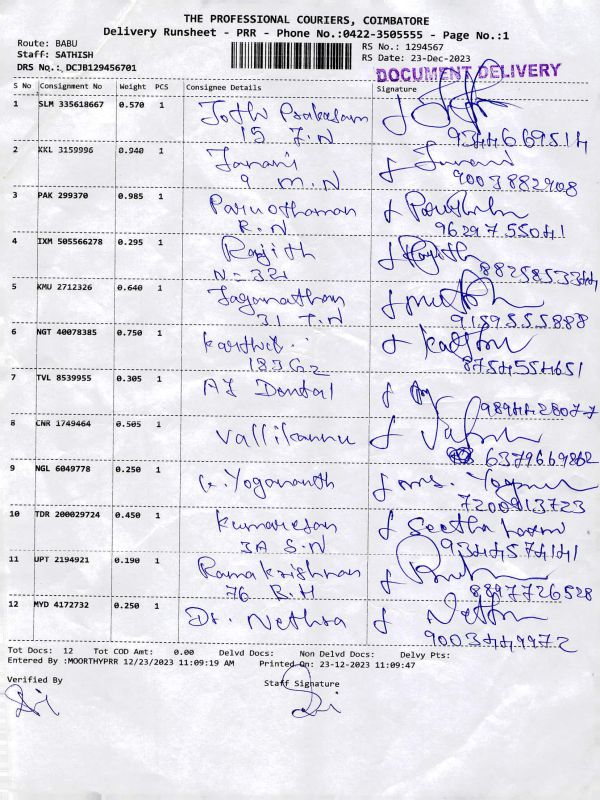 THE PROFESSIONAL COURIERS, COIMBATORE
Delivery Runsheet - PRR - Phone No.:0422-3505555 - Page No.:1
Route: BABU
Staff: SATHISH
DRS No.: DCJB129456701
RS No.: 1294567
RS Date: 23-Dec-2023
DOCUMENT DELIVERY
S No Consignment No Weight PCS Consignee Details Signature
1 SLM 335618667 0.570 1 Jothi Prabasam
15 J.N 9344669514
2 KKL 3159996 0.940 1 Janani Janani
9 M.N 9003882908
3 PAK 299370 0.985 1 Paruothaman
R.N 9629755041
4 IXM 505566278 0.295 1 Rajith Rajith
N-321 8825853344
5 KMU 2712326 0.640 1 Jaganathan
31 J.N 9159555888
6 NGT 40078385 0.750 1 Karthik
183G2 8754554651
7 TVL 8539955 0.305 1 AJ Dental
9894428077
8 CNR 1749464 0.505 1 Vallikannu
6379669862
9 NGL 6049778 0.250 1 G. Yogananth
7200913723
10 TDR 200029724 0.450 1 Kumaresan Seetha
3A S.N 9344574141
11 UPT 2194921 0.190 1 Ramakrishnan
76 R.H 8897726528
12 MYD 4172732 0.250 1 Dr. Nethra
9003449972
Tot Docs: 12 Tot COD Amt: 0.00 Delvd Docs: Non Delvd Docs: Delvy Pts:
Entered By :MOORTHYPRR 12/23/2023 11:09:19 AM Printed On: 23-12-2023 11:09:47
Verified By Staff Signature